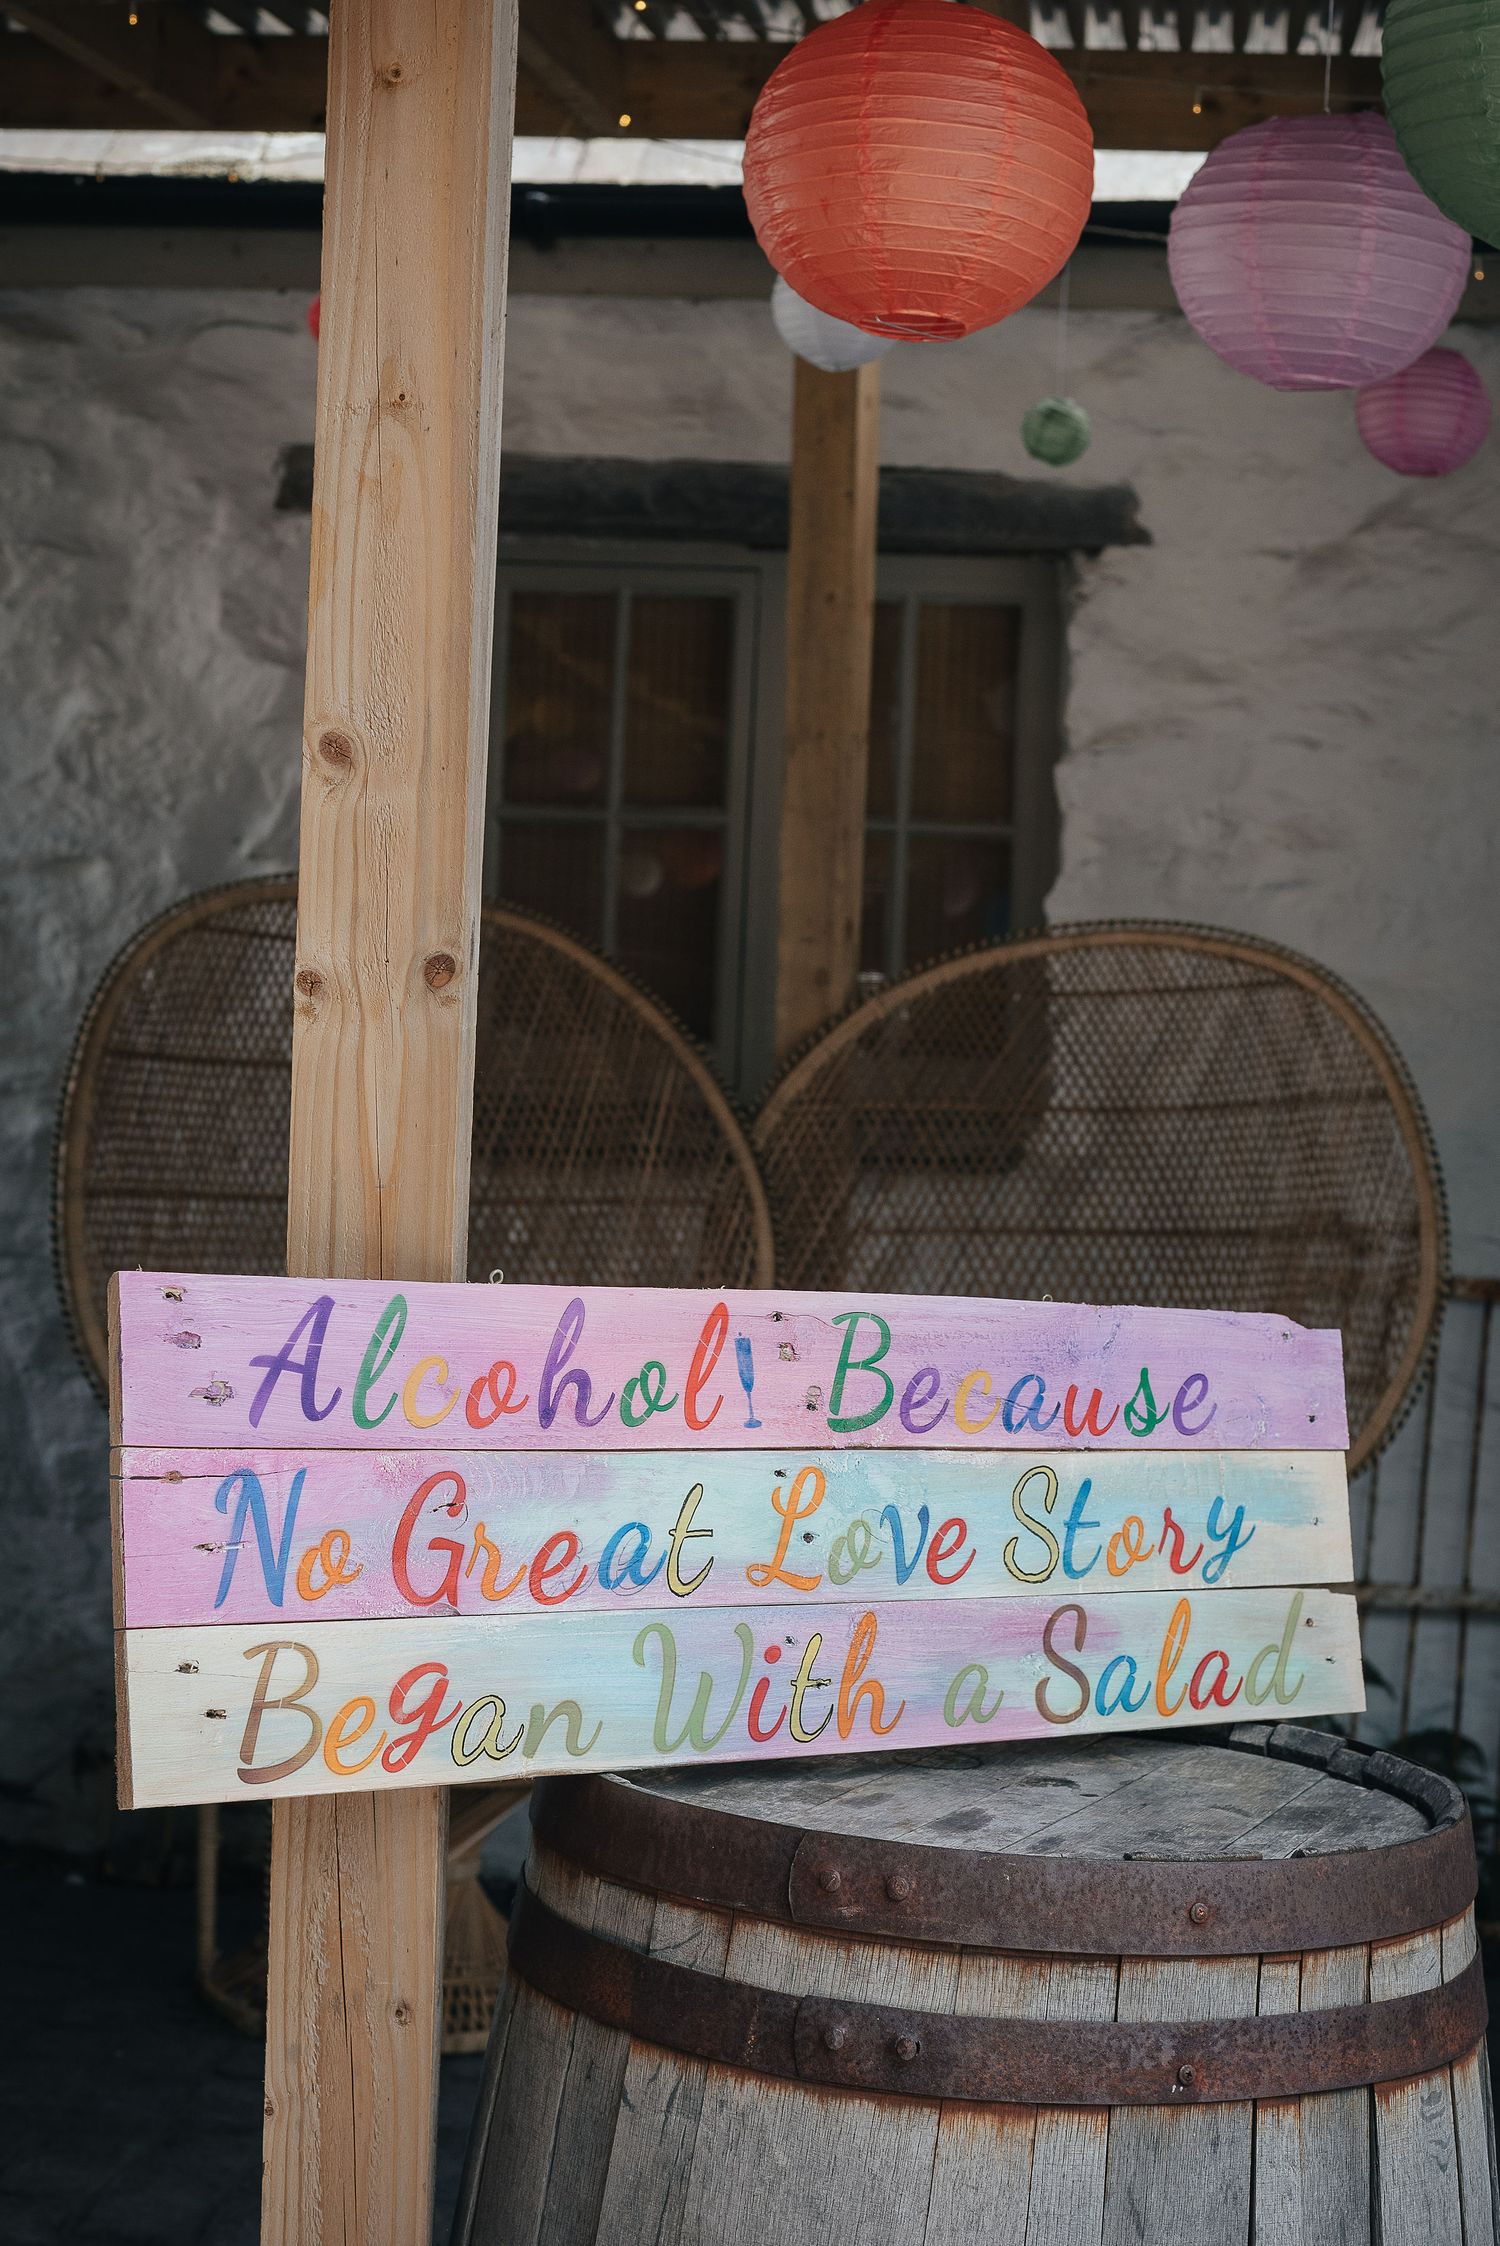 Alcohol! Because
No Great Love Story
Began With a Salad